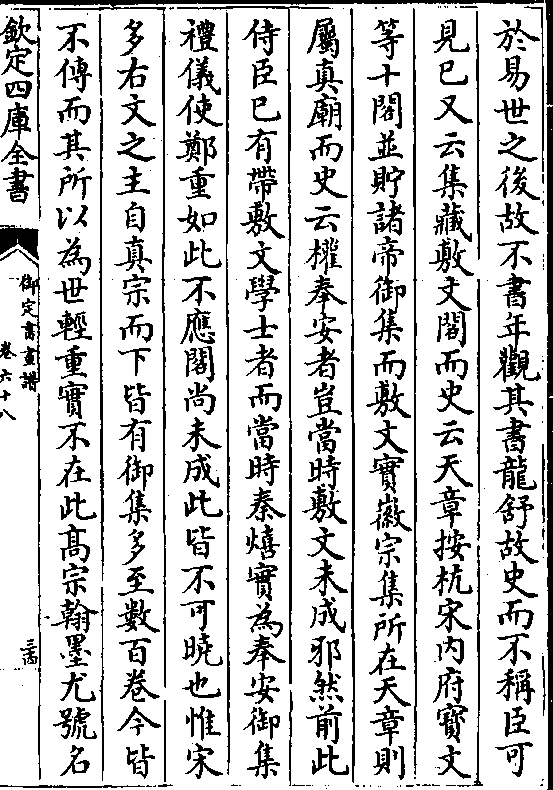 於易世之後故不書年觀其書龍舒故史而不稱臣可
見已又云集藏敷文閣而史云天章按杭宋内府寶文
等十閣並貯諸帝御集而敷文實徽宗集所在天章則
屬真廟而史云權奉安者豈當時敷文未成邪然前此
侍臣已有帶敷文學士者而當時秦熺實為奉安御集
禮儀使鄭重如此不應閣尚未成此皆不可曉也惟宋
多右文之主自真宗而下皆有御集多至數百卷今皆
不傳而其所以為世輕重實不在此髙宗翰墨尤號名
欽定四庫全書
御定書畫譜
卷六十八
三十四